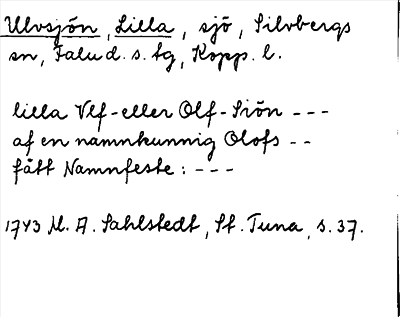 Ulvsjön, Lilla, sjö, Silvbergs
sn, Falu d. s. tg, Kopp. l.
lilla Vlf-eller Olf-Siön ---
af en namnkunnig Olofs --
fått Namnfeste: ---
1743 M. A. Sahlstedt, St. Tuna, s. 37.